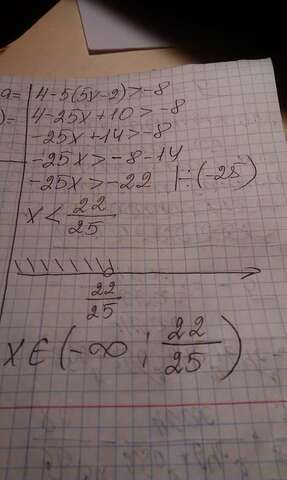 a= 4-5(5x-2)>-8
)= 4-25x+10>-8
-25x+14>-8
-25x>-8-14
-25x>-22 |:(-25)
x<22/25
22/25
x∈(-∞; 22/25)